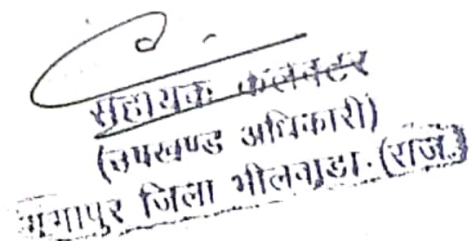 सहायक कलक्टर
(उपखण्ड अधिकारी)
गंगापुर जिला भीलवाडा.(राज.)